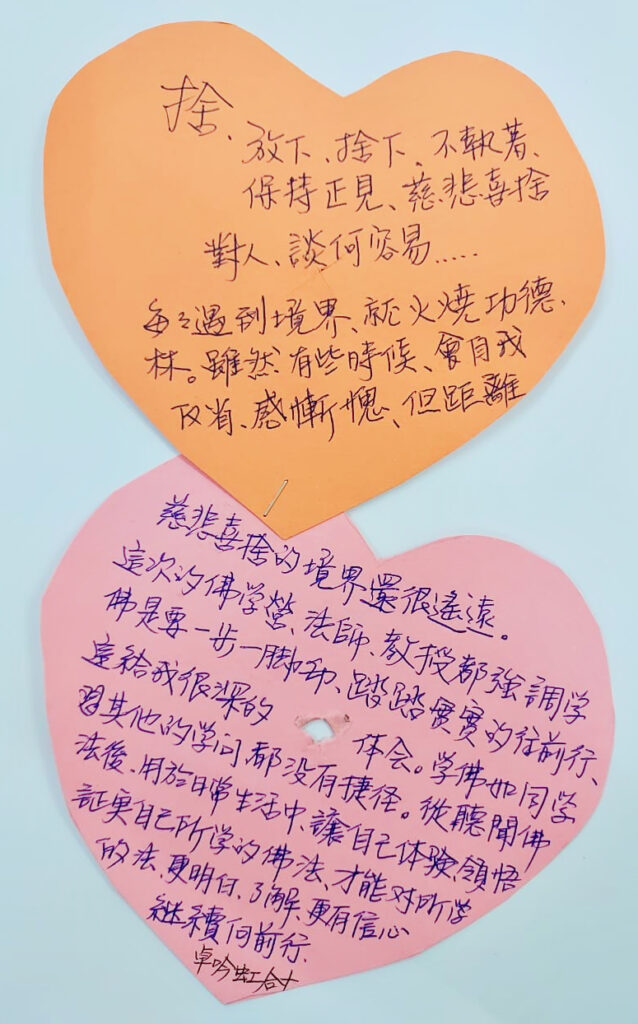 捨、
放下、捨下。不執著、
保持正見、慈悲喜捨
對人、談何容易.....
每々遇到境界、就火燒功德、
林。雖然有些時候、會自我
反省、感慚愧、但距離
慈悲喜捨的境界還很遙遠。
這次的佛学營、法師、教授都強調学
佛是要一步一脚印、踏踏實實的往前行、
這給我很深的 体会。学佛如同学
習其他的学问都没有捷径。從聽聞佛
法後、用於日常生活中、讓自己体験、領悟
証実自己所学的佛法、才能对所学
的法、更明白、了解、更有信心
继續向前行.
卓吟虹合十